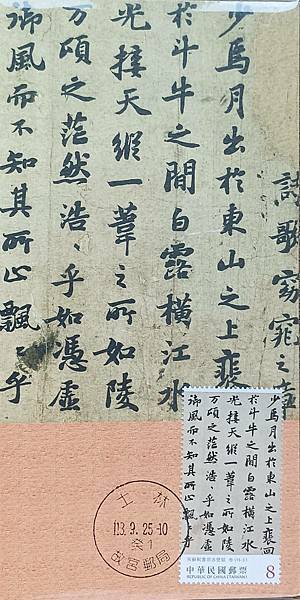 詩歌窈窕之章
少焉月出於東山之上裵
於斗牛之間白露橫江水
光接天縱一葦之所如陵
万頃之茫然浩〻乎如憑虛
御風而不知其所止飄〻乎
士林
113.9.25.-10
癸1
故宮郵局
少焉月出於東山之上裵回
於斗牛之間白露橫江水
光接天縱一葦之所如陵
万頃之茫然浩〻乎如憑虛
御風而不知其所止飄〻乎
中華民國郵票
REPUBLIC OF CHINA (TAIWAN)
8